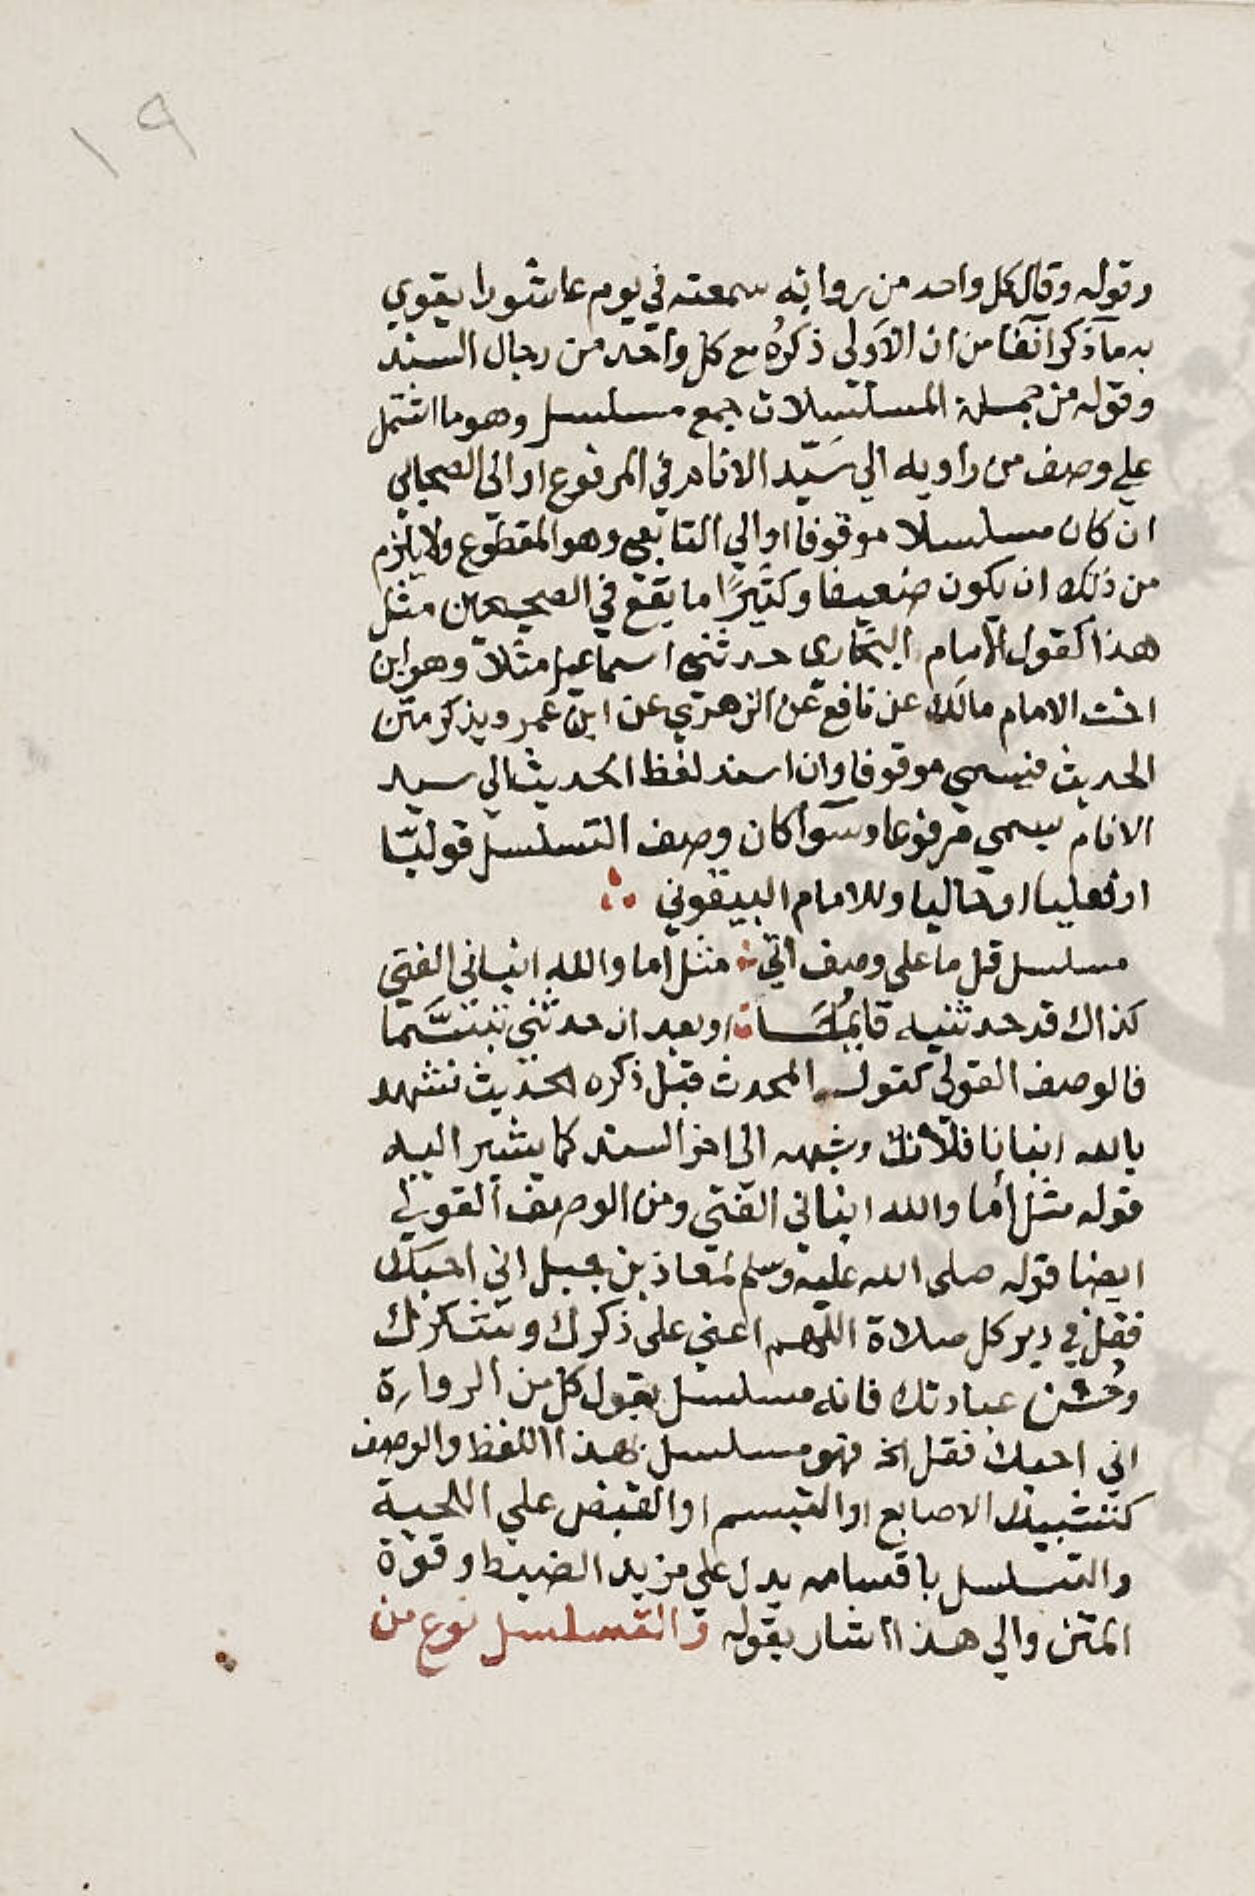 ١٩
وقوله وقال كل واحد من رواته سمعته في يوم عاشورا يقوي
به ما ذكر آنفا من ان الأولى ذكره مع كل واحد من رجال السند
وقوله من جملة المسلسلات جمع مسلسل وهو ما اشتمل
علي وصف من راويه الي سيّد الانام في المرفوع او الى الصحابي
ان كان مسلسلا موقوفا او الي التابعي وهو المقطوع ولا يلزم
من ذلك ان يكون ضعيفا وكثيرًا ما يقع في الصحيحين مثل
هذا كقول الامام البخاري حدثني اسماعيل مثلا وهو ابن
اخت الامام مالك عن نافع عن الزهري عن ابن عمر ويذكر متن
الحديث فيسمي موقوفا وان اسند لفظ الحديث الي سيد
الانام يسمي مرفوعا وسوآ كان وصف التسلسل قوليّا
او فعليا او حاليا وللامام البيقوني
مسلسل قل ما على وصف اتي مثل أما والله انباني الفتي
كذاك قد حدثنيه قايمًا او بعد ان حدثني تبسَّما
فالوصف القولي كقول المحدث قبل ذكره الحديث نشهد
بالله انبانا فلان وشبهه الى اخر السند كما يشير اليه
قوله مثل أما والله انباني الفتي ومن الوصف القولي
ايضا قوله صلى الله عليه وسلم لمعاذ بن جبل اني احبك
فقل في دبر كل صلاة اللهم اعني على ذكرك وشكرك
وحُسْن عبادتك فانه مسلسل بقول كل من الرواة
اني احبك فقل الخ فهو مسلسل بهذا اللفظ والوصف
كتشبيك الاصابع او التبسم او القبض علي اللحية
والتسلسل باقسامه يدل علي مزيد الضبط وقوة
المتن والي هذا اشار بقوله والتسلسل نوع من